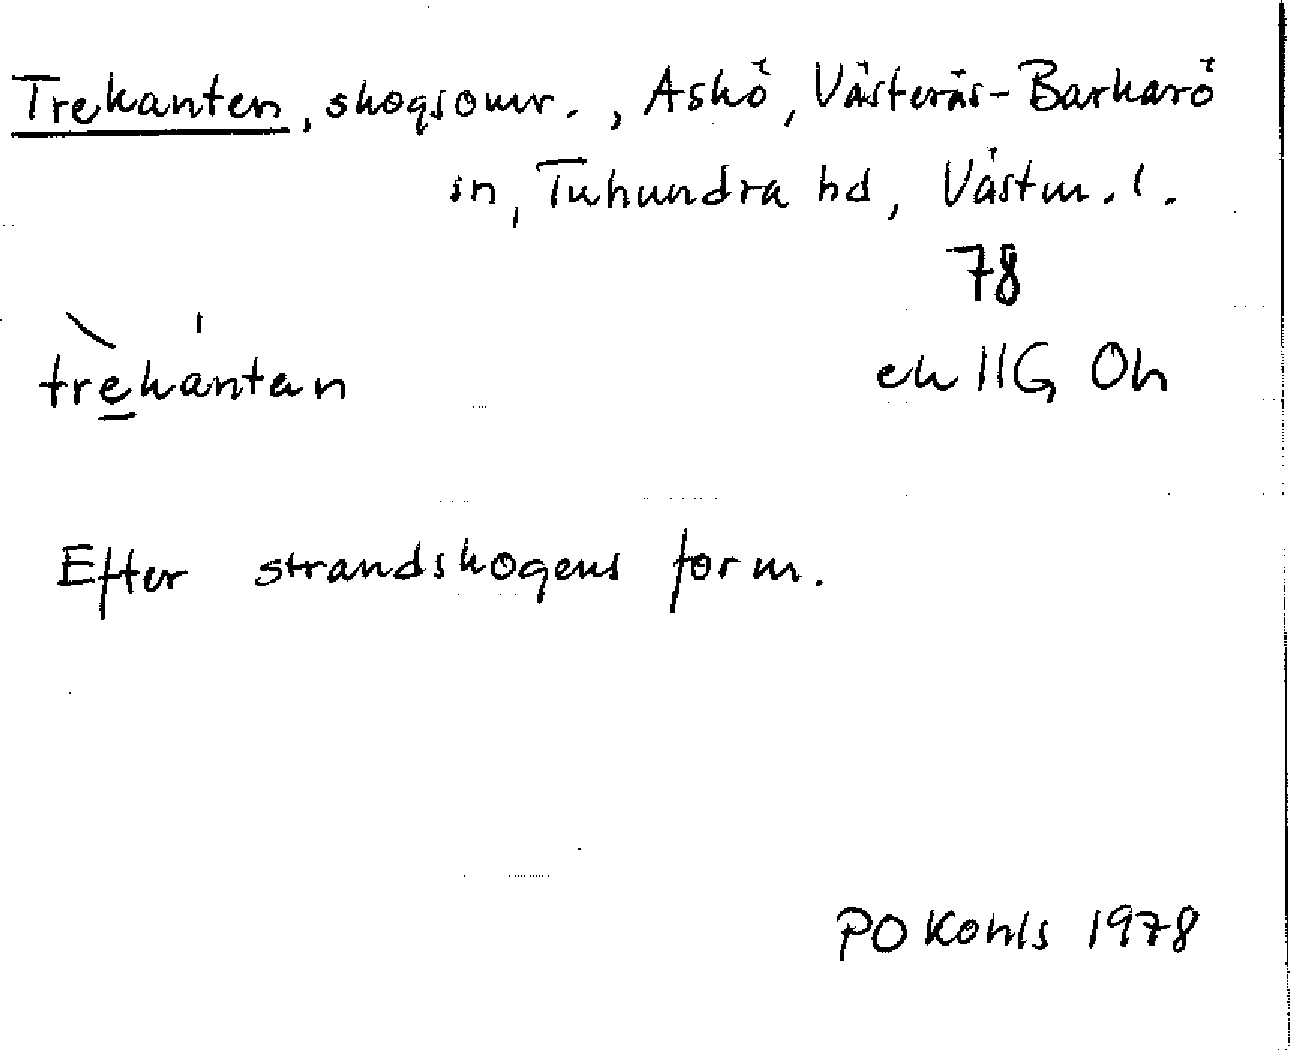 Trekanten, skogsomr., Askö, Västerås-Barkarö
sn, Tuhundra hd, Västm. l.
78
trèkánten
ek 11G Oh
Efter strandskogens form.
PO Kohls 1978